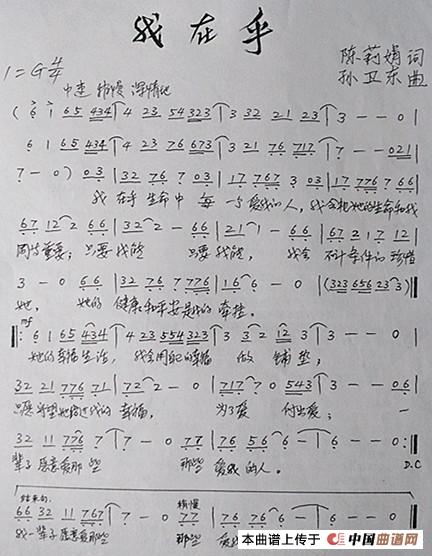 我在乎
陈莉娟 词
1=G 4/4
孙卫东 曲
中速 稍慢 深情地
( 6 1 65 434 | 4 23 54 323 | 3 32 21 23 | 3 - - 0 |
6 1 65 434 | 4 23 76 673 | 3 21 76 717 | 7 - - 021 |
7 - 0 ) 03 | 32 76 7 03 | 17 767 3 03 | 17 776 7 66 |
我 在乎 生命中 每一个爱我的人,
67 12 2 66 | 32 2 - 66 | 21 1 - 66 | 67 21 17 12 |
同等重要; 只要我能 只要我能, 我会 不计条件的 珍惜
3 - 0 66 | 32 76 7 776 | 16 6 - 0 | (323 656 23 3) |
她, 她的 健康和平安是我的 牵挂.
mf
6 1 65 434 | 4 23 554 323 | 3 3 2 12 3 | 3 - - 0 |
她的幸福生活, 我会用自己的幸福 做 铺垫;
32 21 776 71 | 72 2 - 0 | 717 7 0 543 | 3 - - 06 |
只愿 幸福, 为了爱 付出爱; 一
32 11 776 7 | 7 - 0 77 | 76 56 6 - | 6 - - 0 :|
辈子愿意爱那些 那些 爱我的人.
D.C
结束句
稍慢
66 32 11 767 | 7 - 0 77 | 76 76 6 - | 6 - - 0
我一辈子愿意爱那些 那些 爱我
本曲谱上传于 中国曲谱网